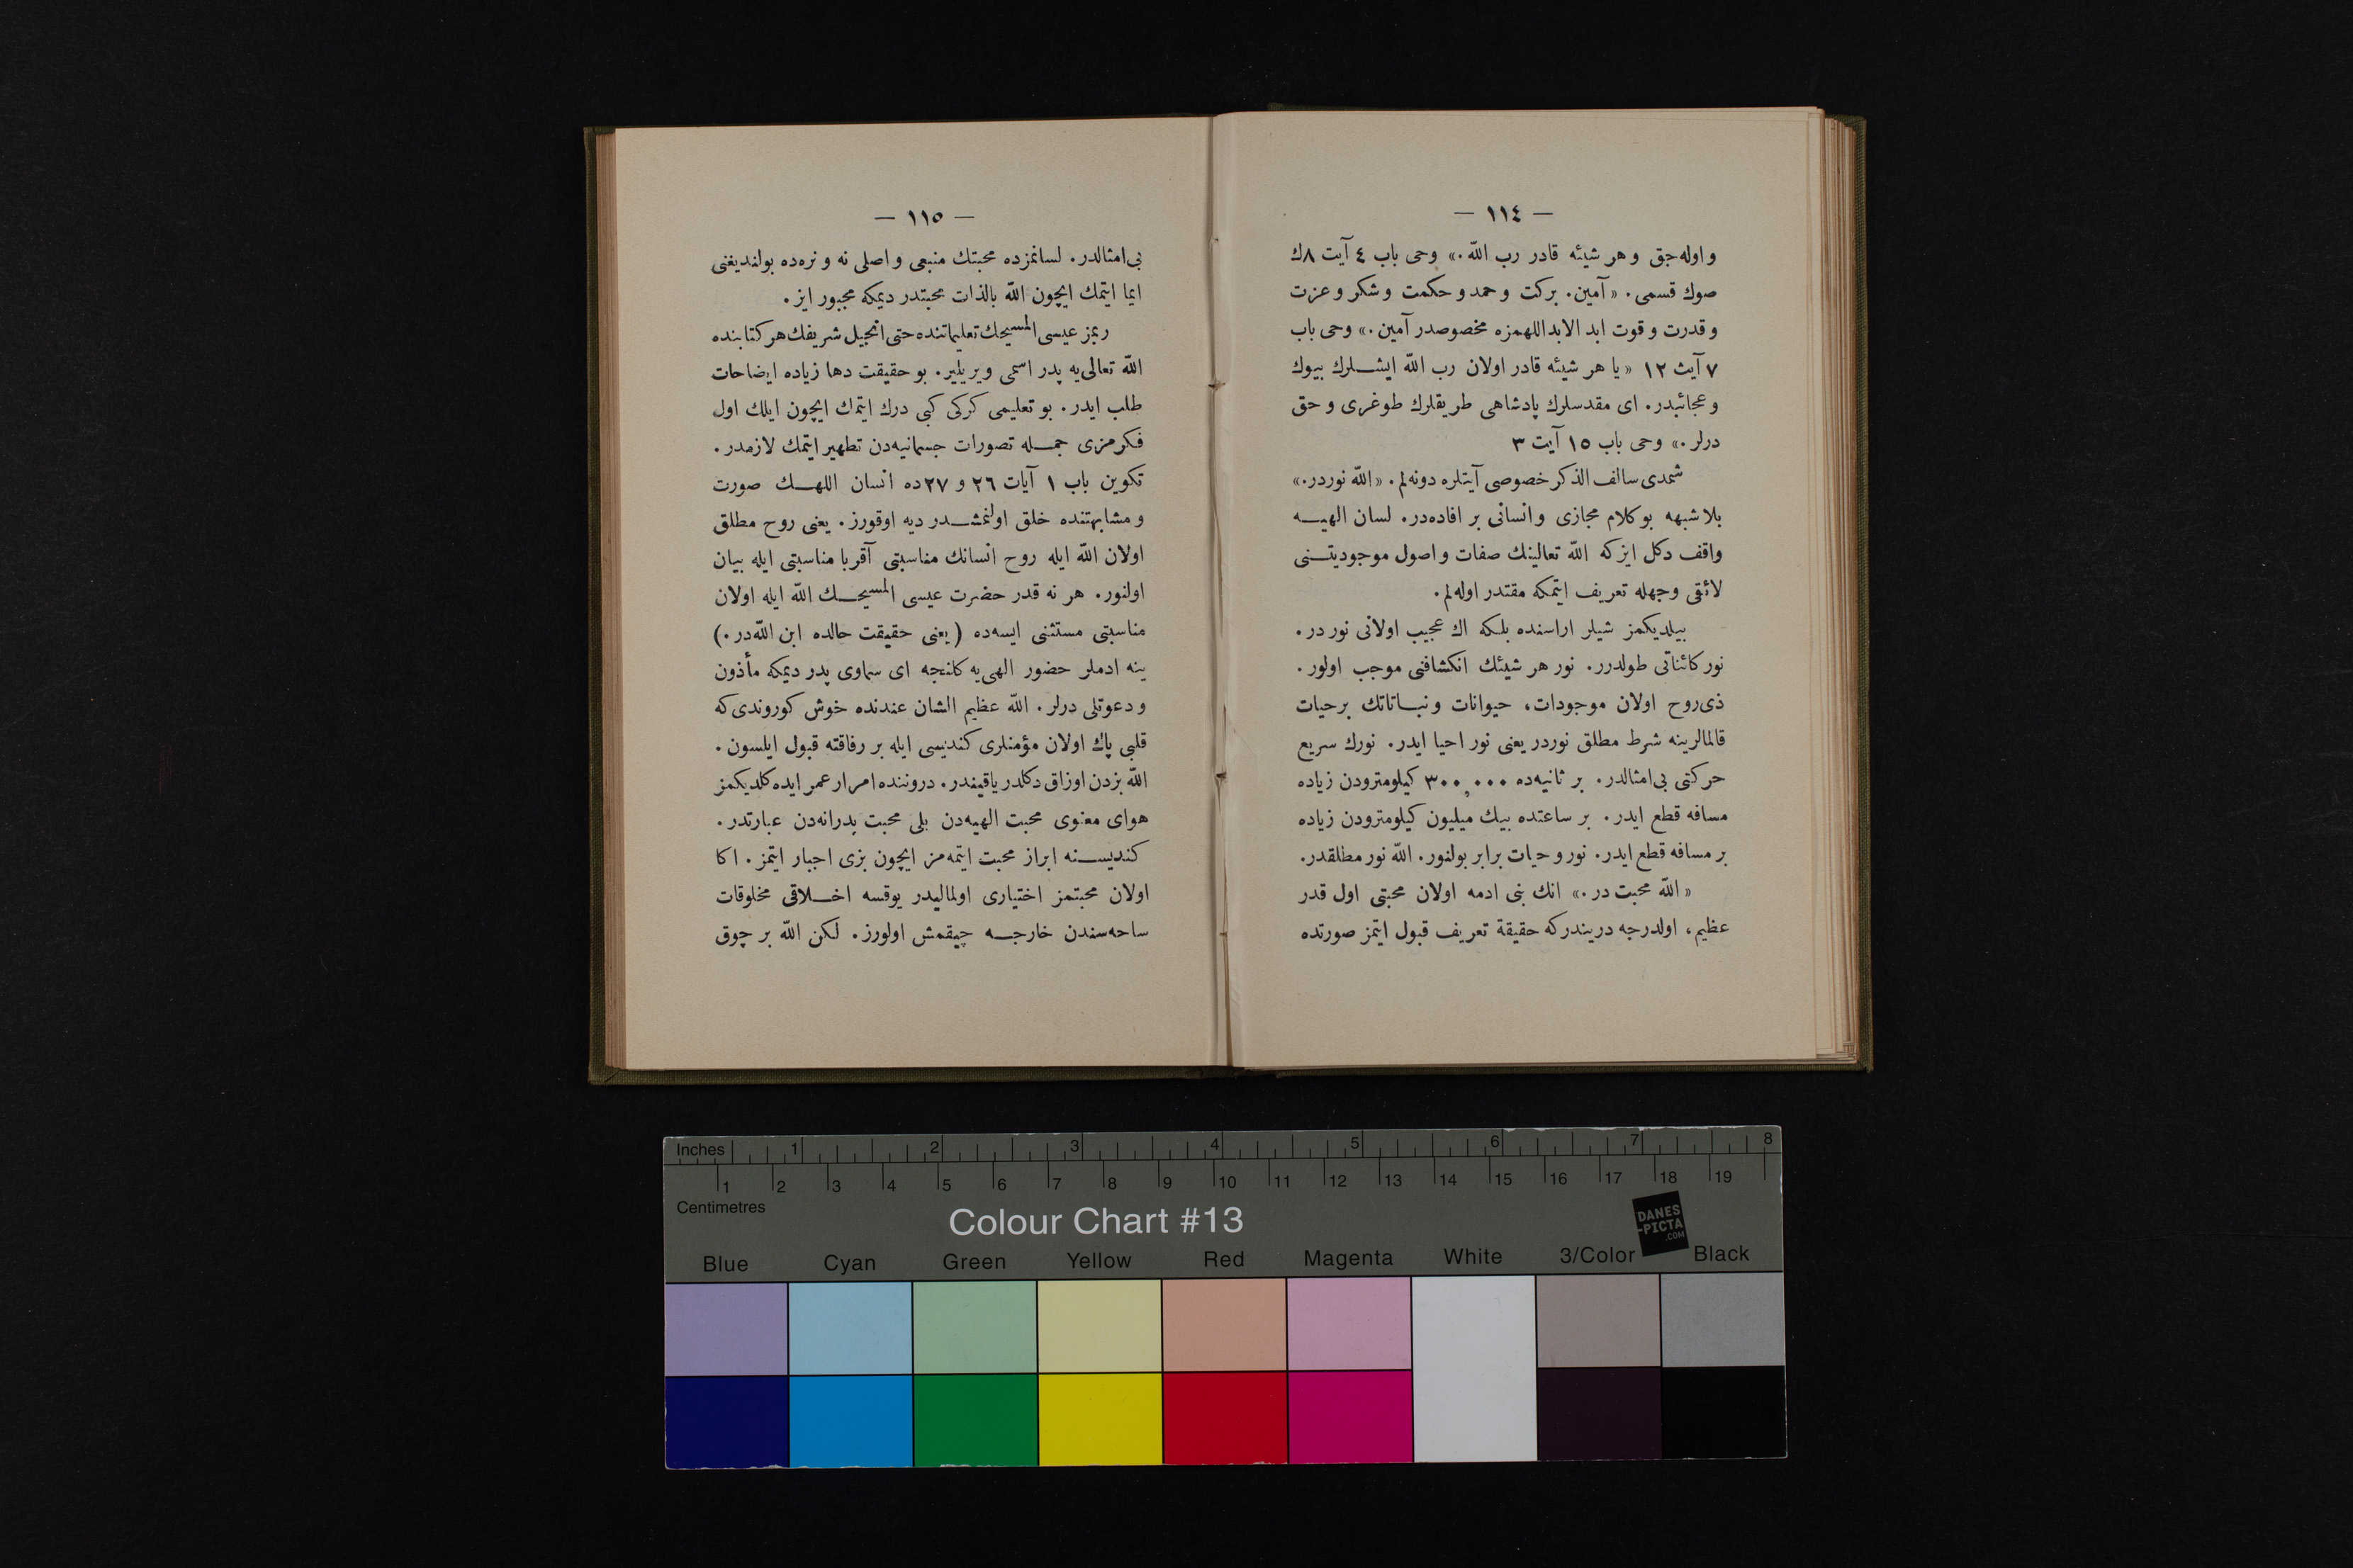 — ١١٤ —
و اوله‌جق و هر شیئه قادر رب اللّه.» وحی باب ٤ آیت ٨ك
صوك قسمی. «آمین. بركت و حمد و حكمت و شكر و عزت
و قدرت و قوت ابد الابد اللهمزه مخصوصدر آمین.» وحی باب
٧ آیت ١٢ «یا هر شیئه قادر اولان رب اللّه ایشلرك بیوك
و عجائبدر. ای مقدسلرك پادشاهی طریقلرك طوغری و حق
درلر.» وحی باب ١٥ آیت ٣
شمدی سالف الذكر خصوصی آیتلره دونه‌لم. «اللّه نوردر.»
بلا شبهه بو كلام مجازی و انسانی بر افاده‌در. لسان الهیه
واقف دكل ایز كه اللّه تعالینك صفات و اصول موجودیتنی
لائقی وجهله تعریف ایتمكه مقتدر اوله‌لم.
بیلدیكمز شیلر اراسنده بلكه اك عجیب اولانی نور در.
نور كائناتی طولدرر. نور هر شیئك انكشافنی موجب اولور.
ذی‌روح اولان موجودات، حیوانات و نباتاتك برحیات
قالمالرینه شرط مطلق نوردر یعنی نور احیا ایدر. نورك سریع
حركتی بی‌امثالدر. بر ثانیه‌ده ٣٠٠,٠٠٠ كیلومترودن زیاده
مسافه قطع ایدر. بر ساعتده بیك میلیون كیلومترودن زیاده
بر مسافه قطع ایدر. نور و حیات برابر بولنور. اللّه نور مطلقدر.
«اللّه محبت در.» انك بنی ادمه اولان محبتی اول قدر
عظیم، اولدرجه دریندر كه حقیقة تعریف قبول ایتمز صورتده
— ١١٥ —
بی‌امثالدر. لسانمزده محبتك منبعی و اصلی نه و نره‌ده بولندیغنی
ایما ایتمك ایچون اللّه بالذات محبتدر دیمكه مجبور ایز.
ربمز عیسی المسیحك تعلیماتنده حتی انجیل شریفك هر كتابنده
اللّه تعالی‌یه پدر اسمی ویریلیر. بو حقیقت دها زیاده ایضاحات
طلب ایدر. بو تعلیمی كركی كبی درك ایتمك ایچون ایلك اول
فكرمزی جمله تصورات جسمانیه‌دن تطهیر ایتمك لازمدر.
تكوین باب ١ آیات ٢٦ و ٢٧ده انسان اللهك صورت
و مشابهتنده خلق اولنمشدر دیه اوقورز. یعنی روح مطلق
اولان اللّه ایله روح انسانك مناسبتی آقربا مناسبتی ایله بیان
اولنور. هر نه قدر حضرت عیسی المسیحك اللّه ایله اولان
مناسبتی مستثنی ایسه‌ده (یعنی حقیقت حالده ابن اللّه‌در.)
ینه ادملر حضور الهی‌یه كلنجه ای سماوی پدر دیمكه مأذون
و دعوتلی درلر. اللّه عظیم الشان عندنده خوش كوروندی كه
قلبی پاك اولان مؤمنلری كندیسی ایله بر رفاقته قبول ایلسون.
اللّه بزدن اوزاق دكلدر یاقیندر. دروننده امرار عمر ایده كلدیكمز
هوای معنوی محبت الهیه‌دن بلی محبت پدرانه‌دن عبارتدر.
كندیسنه ابراز محبت ایتمه‌مز ایچون بزی اجبار ایتمز. اكا
اولان محبتمز اختیاری اولمالیدر یوقسه اخلاقی مخلوقات
ساحه‌سندن خارجه چیقمش اولورز. لكن اللّه بر چوق
Inches 1 2 3 4 5 6 7 8
1 2 3 4 5 6 7 8 9 10 11 12 13 14 15 16 17 18 19
Centimetres
Colour Chart #13
DANES
-PICTA
.COM
Blue Cyan Green Yellow Red Magenta White 3/Color Black